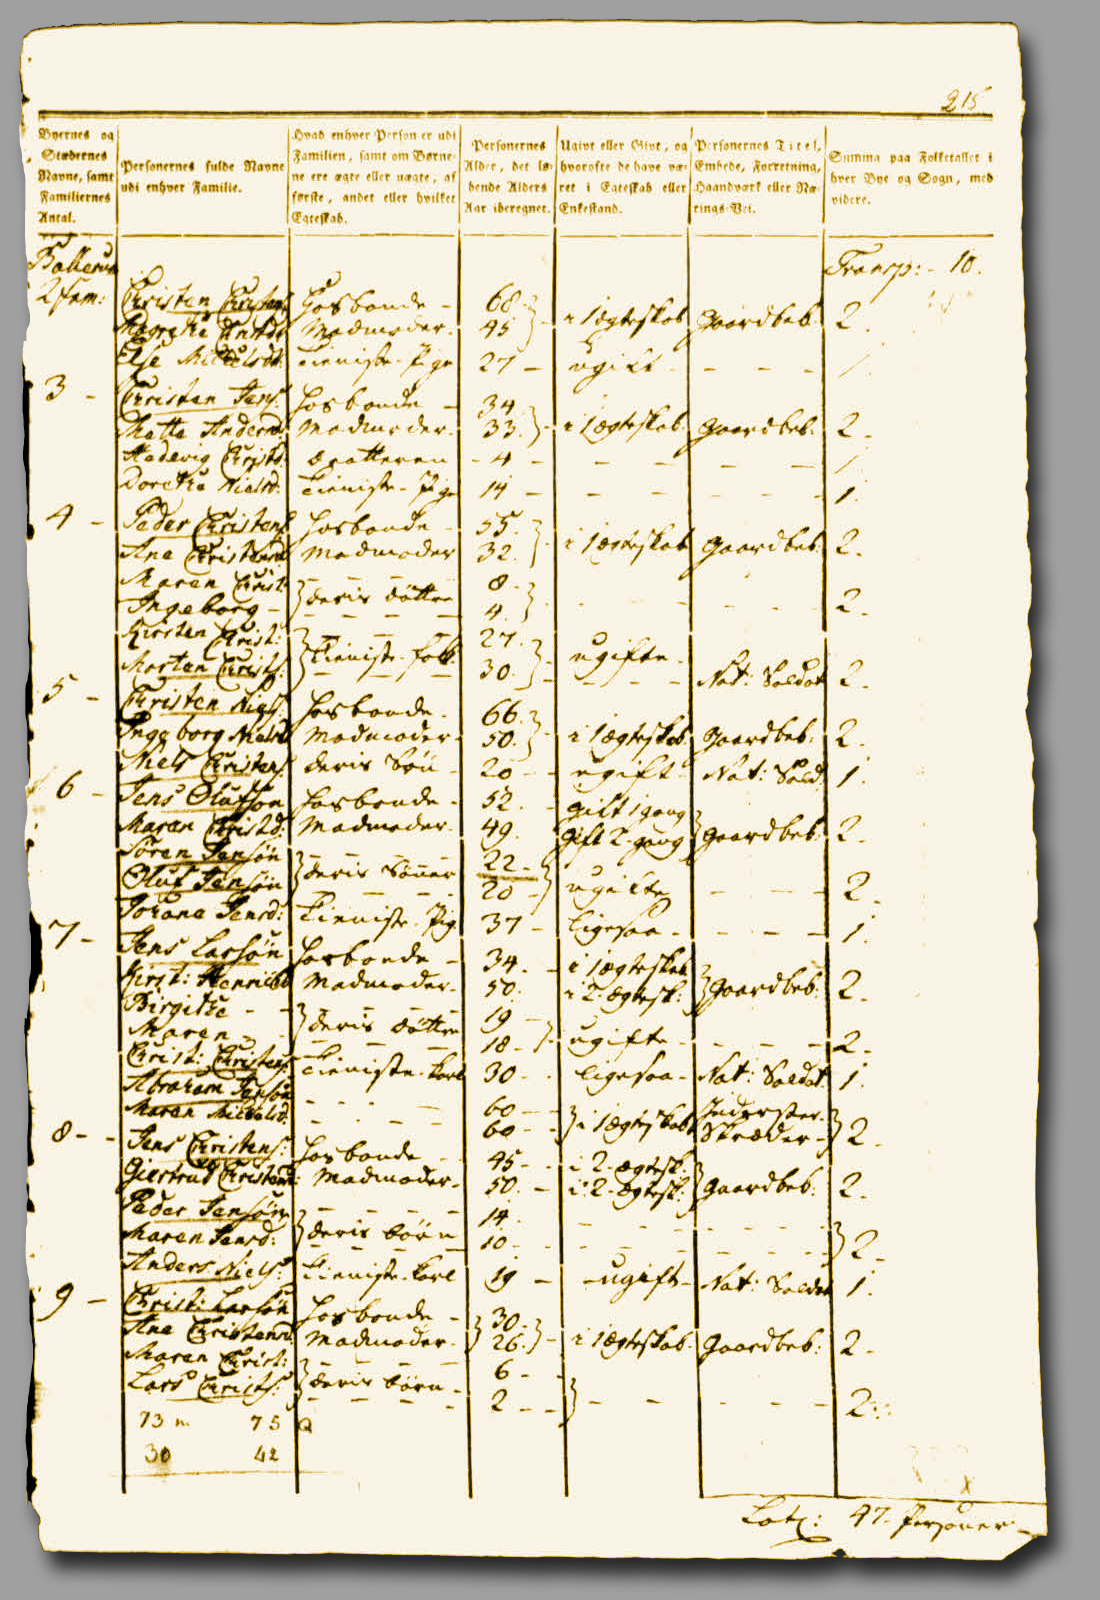 215
Byernes og Stædernes Navne, samt Familiernes Antal.
Personernes fulde Navne udi enhver Familie.
Hvad enhver Person er udi Familien, samt om Børnene ere ægte eller uægte, af første, andet eller hvilket Egteskab.
Personernes Alder, det løbende Alders Aar iberegnet.
Ugivt eller Givt, og hvorofte de have været i Egteskab eller Enkestand.
Personernes Titel, Embede, Forretning, Haandværk eller Nærings-Vei.
Summa paa Folketallet i hver Bye og Sogn, med videre.
Transp: - 10.
2 fam: Christen Christens: Hosbonde - 68 i 1 ægteskab Gaardbeb: 2.
Madmoder - 45
Else Mickelsd: Tieniste-Pige 27 - ugift - - - - 1.
3 - Christen Jens: Hosbonde - 34
Mette Andersd: Madmoder - 33. i 1 ægteskab. Gaardbeb: 2 -
Hedevig Christd: datteren - 4 - - - - - 1.
Dorethe Nielsd: Tieniste-Pige 14 - - - - - 1.
4 - Peder Christens: Hosbonde - 55.
Ane Christensd: Madmoder 32. i 1 ægteskab Gaardbeb: 2.
Maren Christ: deris døttre 8 -
Ingeborg - 4. - - - - 2.
Kirsten Christ: Tieniste-folk 27. ugifte -
Morten Christ: 30. Nat: Soldat 2 -
5 - Christen Niels: Hosbonde - 66.
Ingeborg Nielsd: Madmoder - 50. i 1 ægteskab. Gaardbeb: 2.
Niels Christens: deris Søn - 20 - - ugift - Nat: Sold: 1.
6 - Jens Olufsøn Hosbonde - 52. - gift 1 gang
Maren Christd: Madmoder - 49. Gift 2 gang Gaardbeb: 2 -
Søren Jensøn deris Sønner 22 -
Oluf Jensøn 20 - ugifte - - - 2 -
Johane Jensd: Tieniste-Pig: 37 - ligesaa - - - - 1.
7 - Jens Larsøn Hosbonde - 34. - i 1 ægteskab
Kirst: Henrichsd: Madmoder - 50. i 2 ægtesk: Gaardbeb: 2 -
Birgithe - - deris døttre 19 -
Maren - 18 - ugifte - - - - 2 -
Christ: Christens: Tieniste-karl 30 - - ligesaa - Nat: Soldat 1.
Abraham Jensøn - - - - 60 - - i 1 ægteskab Inderster.
Maren Mickelsd: - - - - 60 - - Skræder - 2 -
8 - - Jens Christens: Hosbonde - 45 - - i 2 ægtesk:
Giertrud Christensd: Madmoder - 50. - i 2 ægtesk: Gaardbeb: 2.
Peder Jensøn deris børn 14.
Maren Jensd: 10 - - - - - 2 -
Anders Niels: Tieniste-karl 19 - ugift - Nat: Soldat 1.
9 - Christ: Larsøn Hosbonde - 30.
Ane Christensd: Madmoder - 26. i 1 ægteskab. Gaardbeb: 2 -
Maren Christ: deris børn - 6 - -
Lars Christs: 2 - - - - - 2
73 m. 75 Q
30 42
x
Lat: 47. Personer -